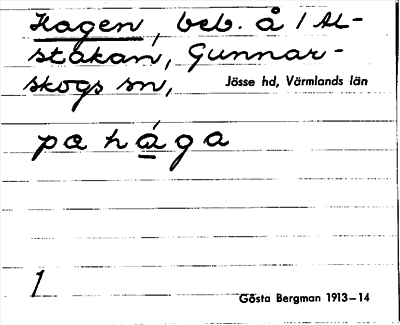 Hagen, beb. å 1 Al-
stakan, Gunnar-
skogs sn, Jösse hd, Värmlands län
pa há̲ga
1
Gösta Bergman 1913–14